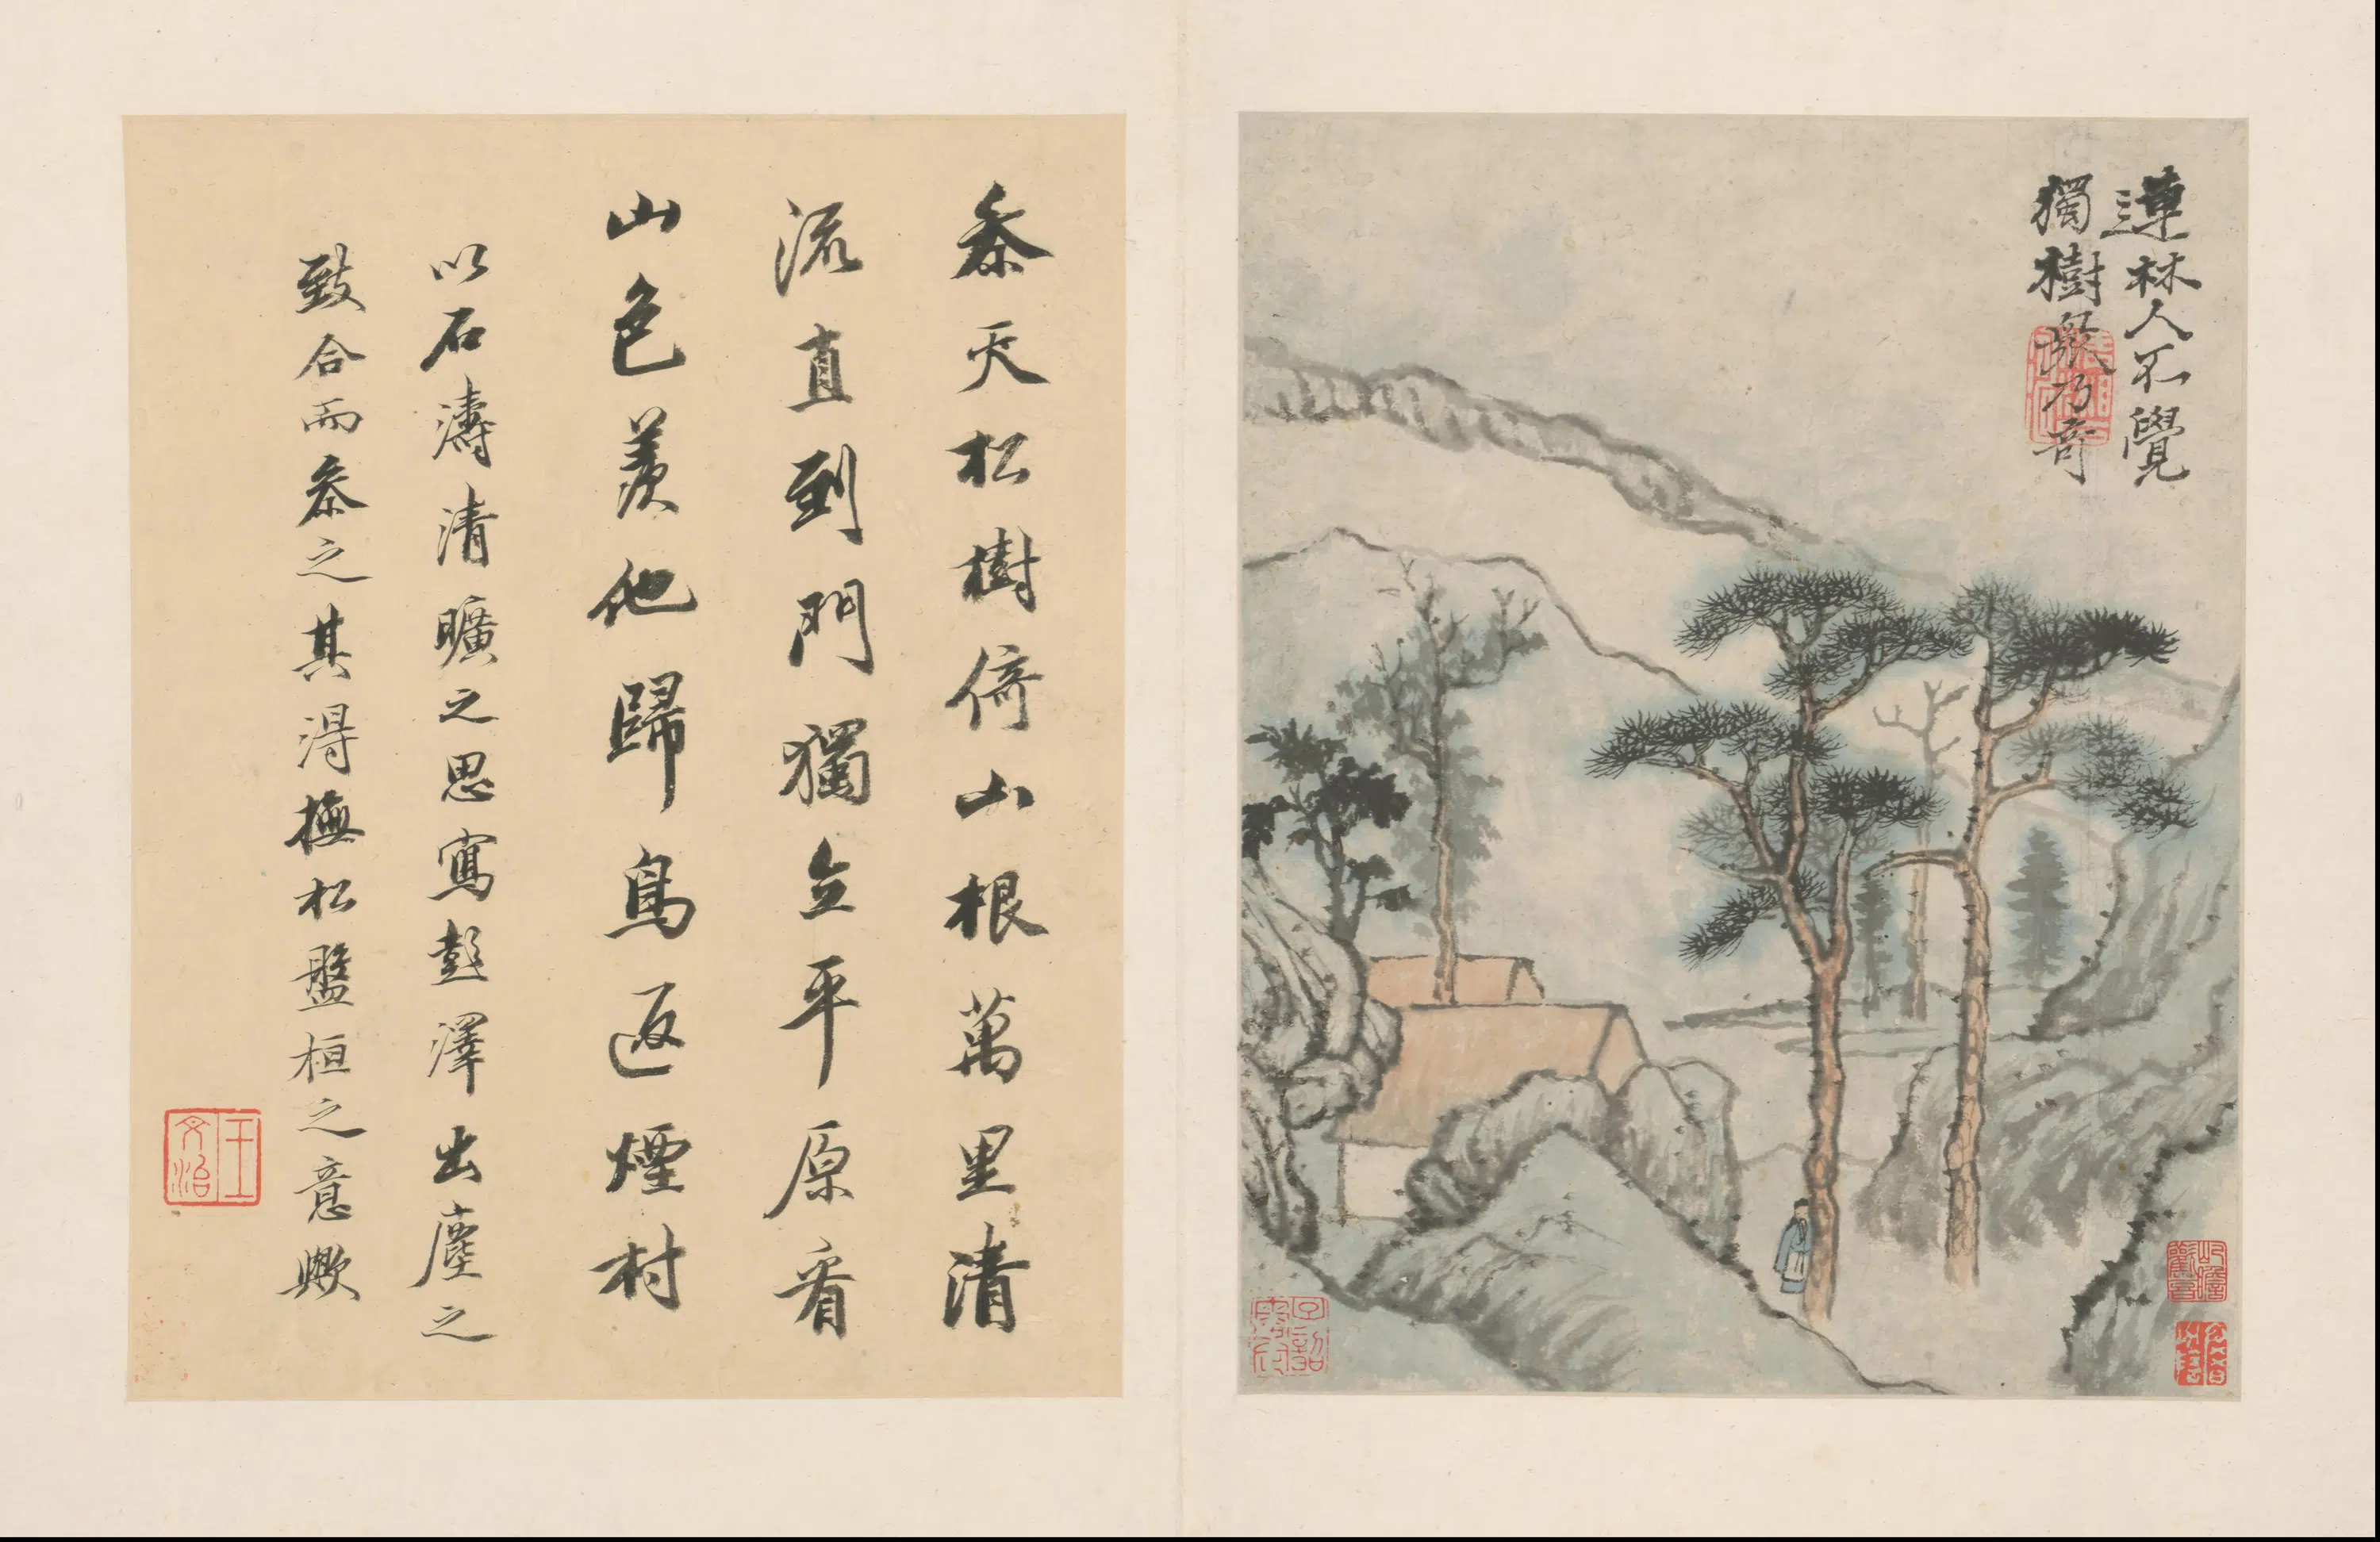 連林人不覺
獨樹眾乃奇
叅天松樹倚山根萬里清
流直到門獨立平原看
山色羨他歸鳥返煙村
以石濤清曠之思寫彭澤出塵之
致合而叅之其得撫松盤桓之意歟
王文治